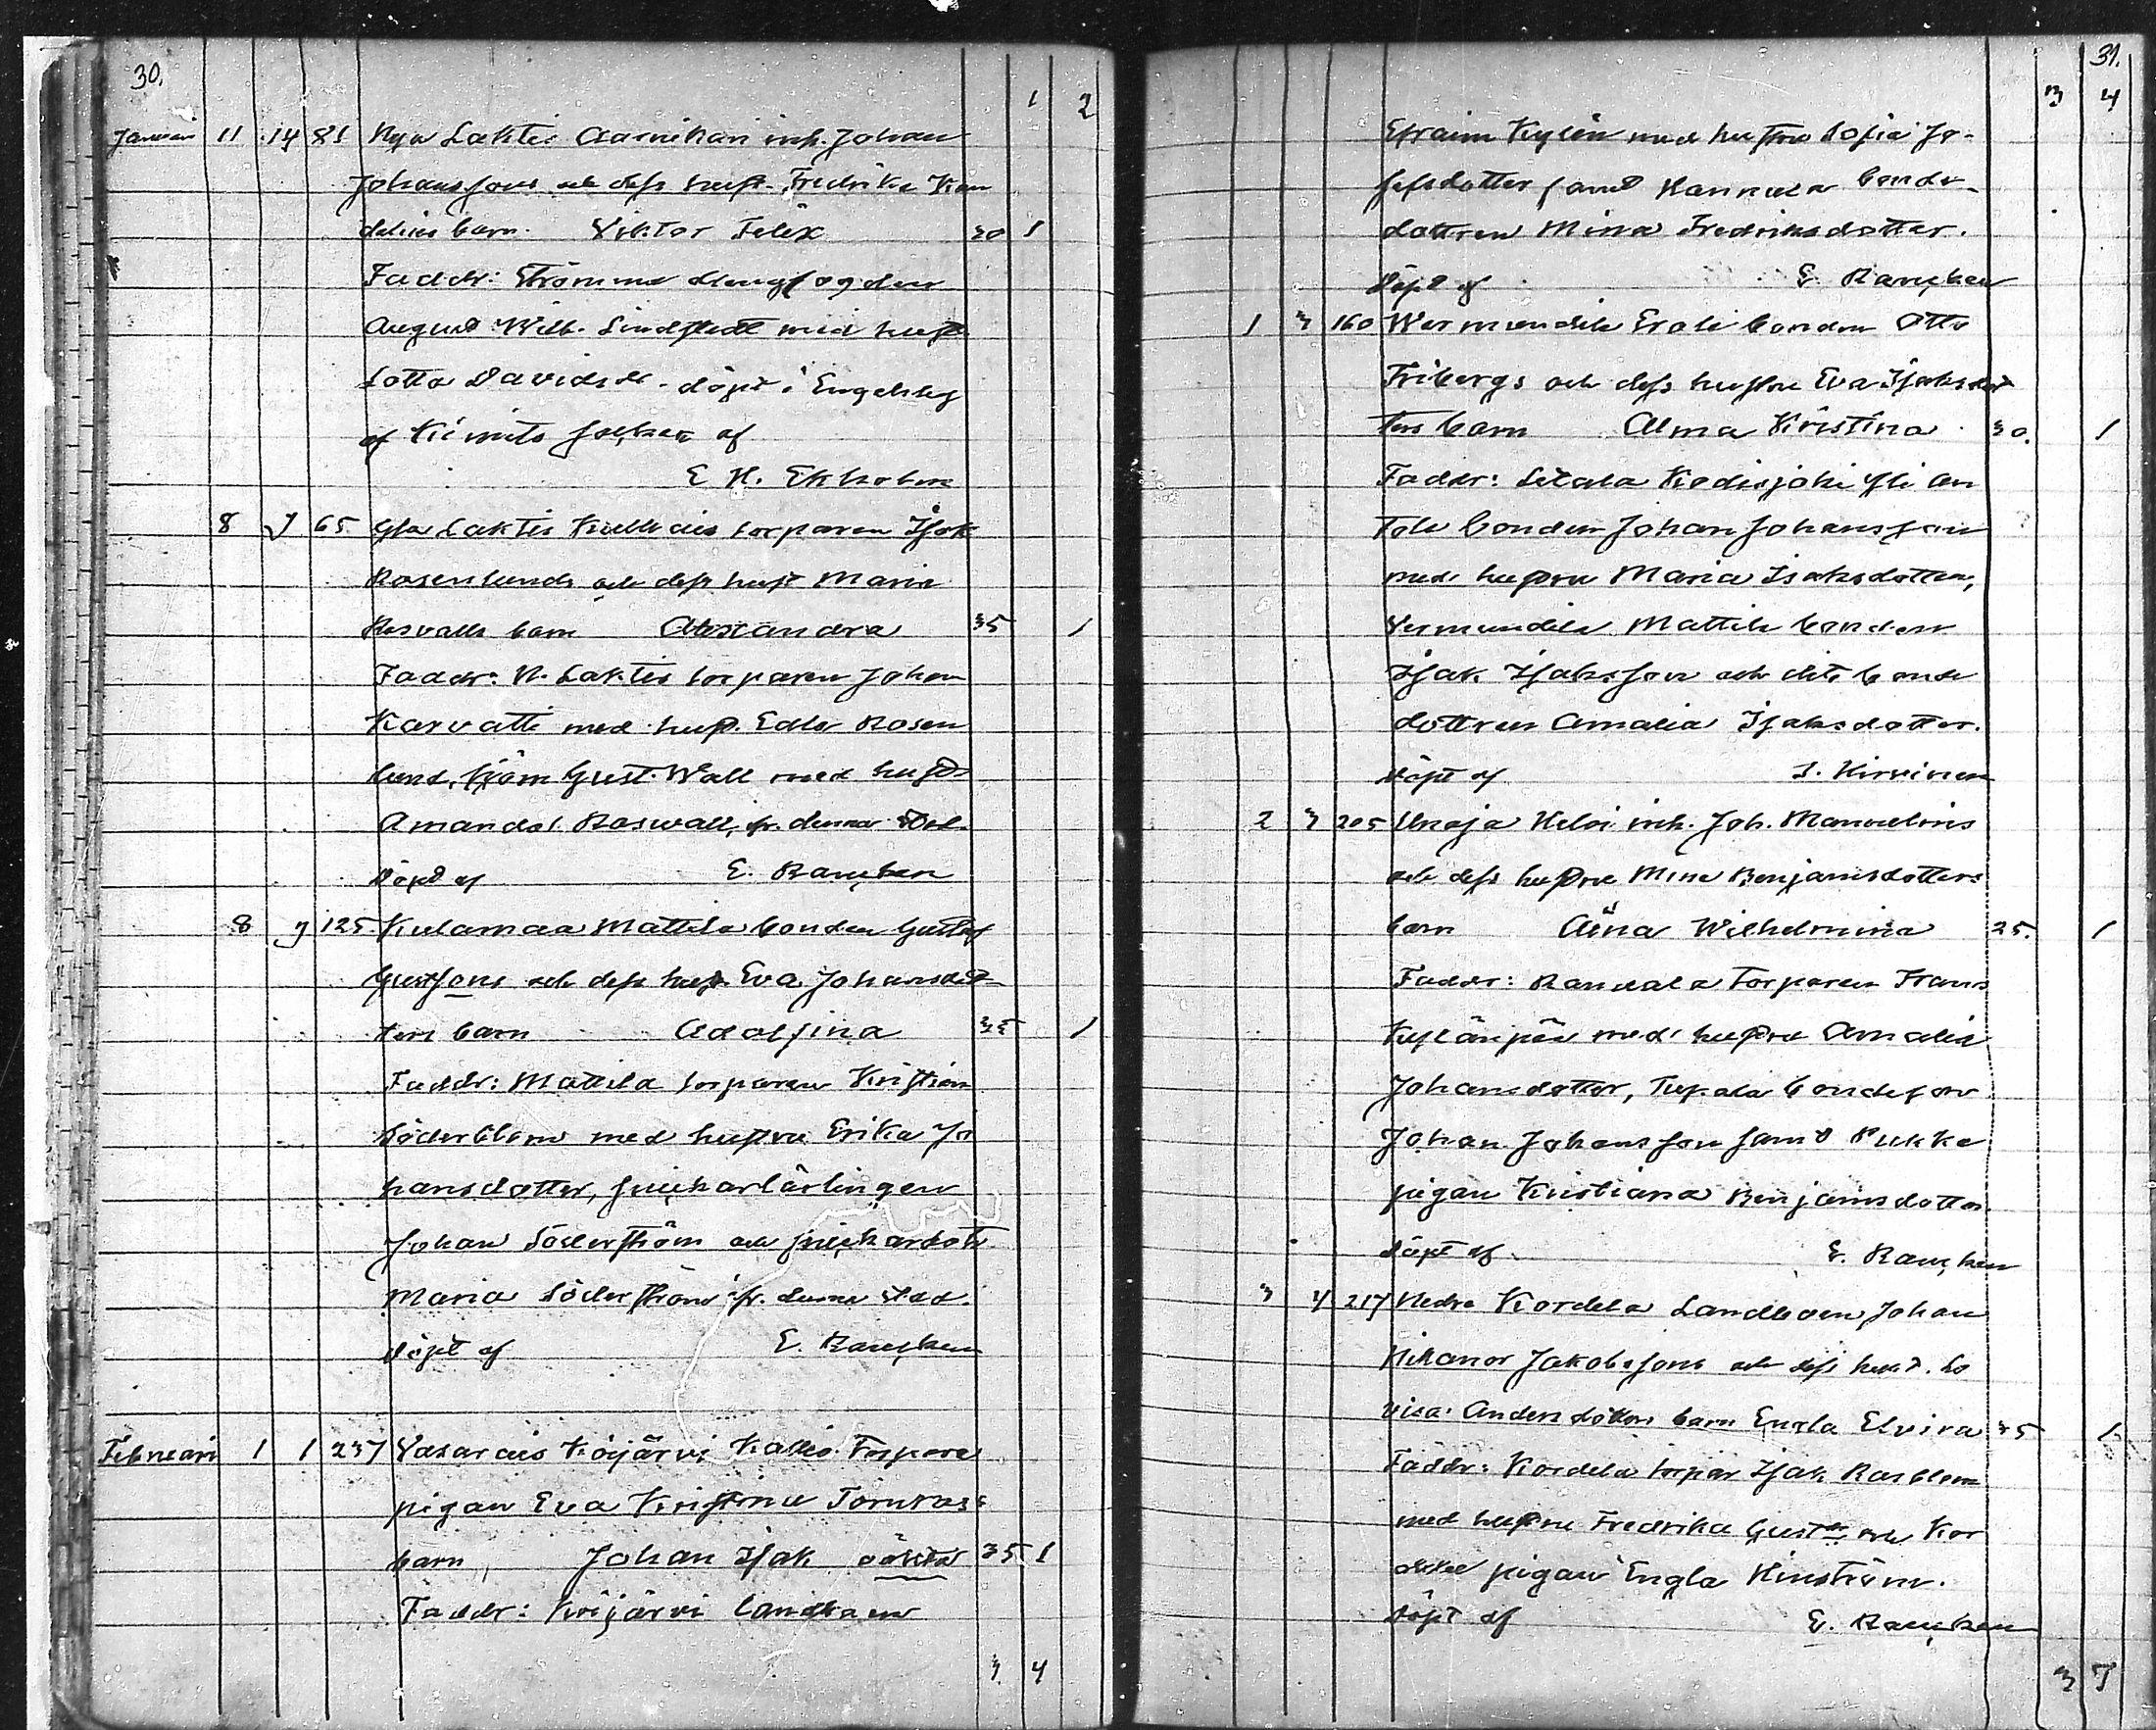 30.
1 2
Januari 11 14 81 Nya Laktis Aarnikari inh. Johan
Johanssons och dess hust. Fredrika
delins barn. Viktor Felix 30 1
Faddr: Strömma
August Wilh. Lindstedt med hust
Lotta Davidsdr. döpt i Engelsby
af Kimito socken af
E H. Ekholm
8 9 65 Gla Laktis torparen Isak
Rosenlunds och dess hust Maria
Rosvalls barn Alexandra 35 1
Faddr: N. Laktis torparen Johan
Karvatti med hust. Edla Rosen
lund, Gust. Wall med hust
Amanda Roswall, fr. denna
Döpt af E. Rancken
8 9 125 Kulamaa Mattila bonden Gustaf
Gustfsons och dess hust. Eva Johansdot
ters barn Adolfina 35 1
Faddr: Mattila torparen Kristian
Söderblom med hustru Erika Jo
hansdotter, snickarlärlingen
Johan Söderström och snickardotr.
Maria Söderström fr. denna stad.
Döpt af E. Rancken
Februari 1 1 237 Vasarais Köijärvi Kallio Torpare
pigan Eva Kristina Tornroos
barn, Johan Isak oäkta 35 1
Faddr: Köijärvi Landbon
3 4
31.
3 4
Efraim Kylén med hustru Sofia Jo-
sefsdotter samt Hannula bonde-
dottren Mina Fredriksdotter.
Döpt af E. Rancken
1 3 160 Wermundila Erola bonden Otto
Fribergs och dess hustru Eva Isaksdot
ters barn Alma Kristina 30. 1
Faddr: Letala Kodisjoki Yli An
tola bonden Johan Johansson
med hustru Maria Isaksdotter,
Vermundila Mattila bonden
Isak Isaksson och dito bonde
dottren Amalia Isaksdotter.
Döpt af I. Hirvinen
2 3 205 Unaja Heloi inh. Joh. Manuelins
och dess hustru Mina Benjamsdotters
barn Aina Wilhelmina 25. 1
Faddr: Ranvala Torparen Frans
med hustru Amalia
Johansdotter, Tupala bondeson
Johan Johansson samt Pukka
pigan Kristiana Benjamsdotter.
Döpt af E. Rancken
3 4 217 Nedre Kordela Landboen Johan
Nikanor Jakobssons och dess hust. Lo
visa Andersdotters barn Engla Elvira 35 1
Faddr: Kordela torpar Isak Rosblom
med hustru Fredrika Gustdr. och Kor
dela pigan Engla Hinström.
Döpt af E. Rancken
3 7